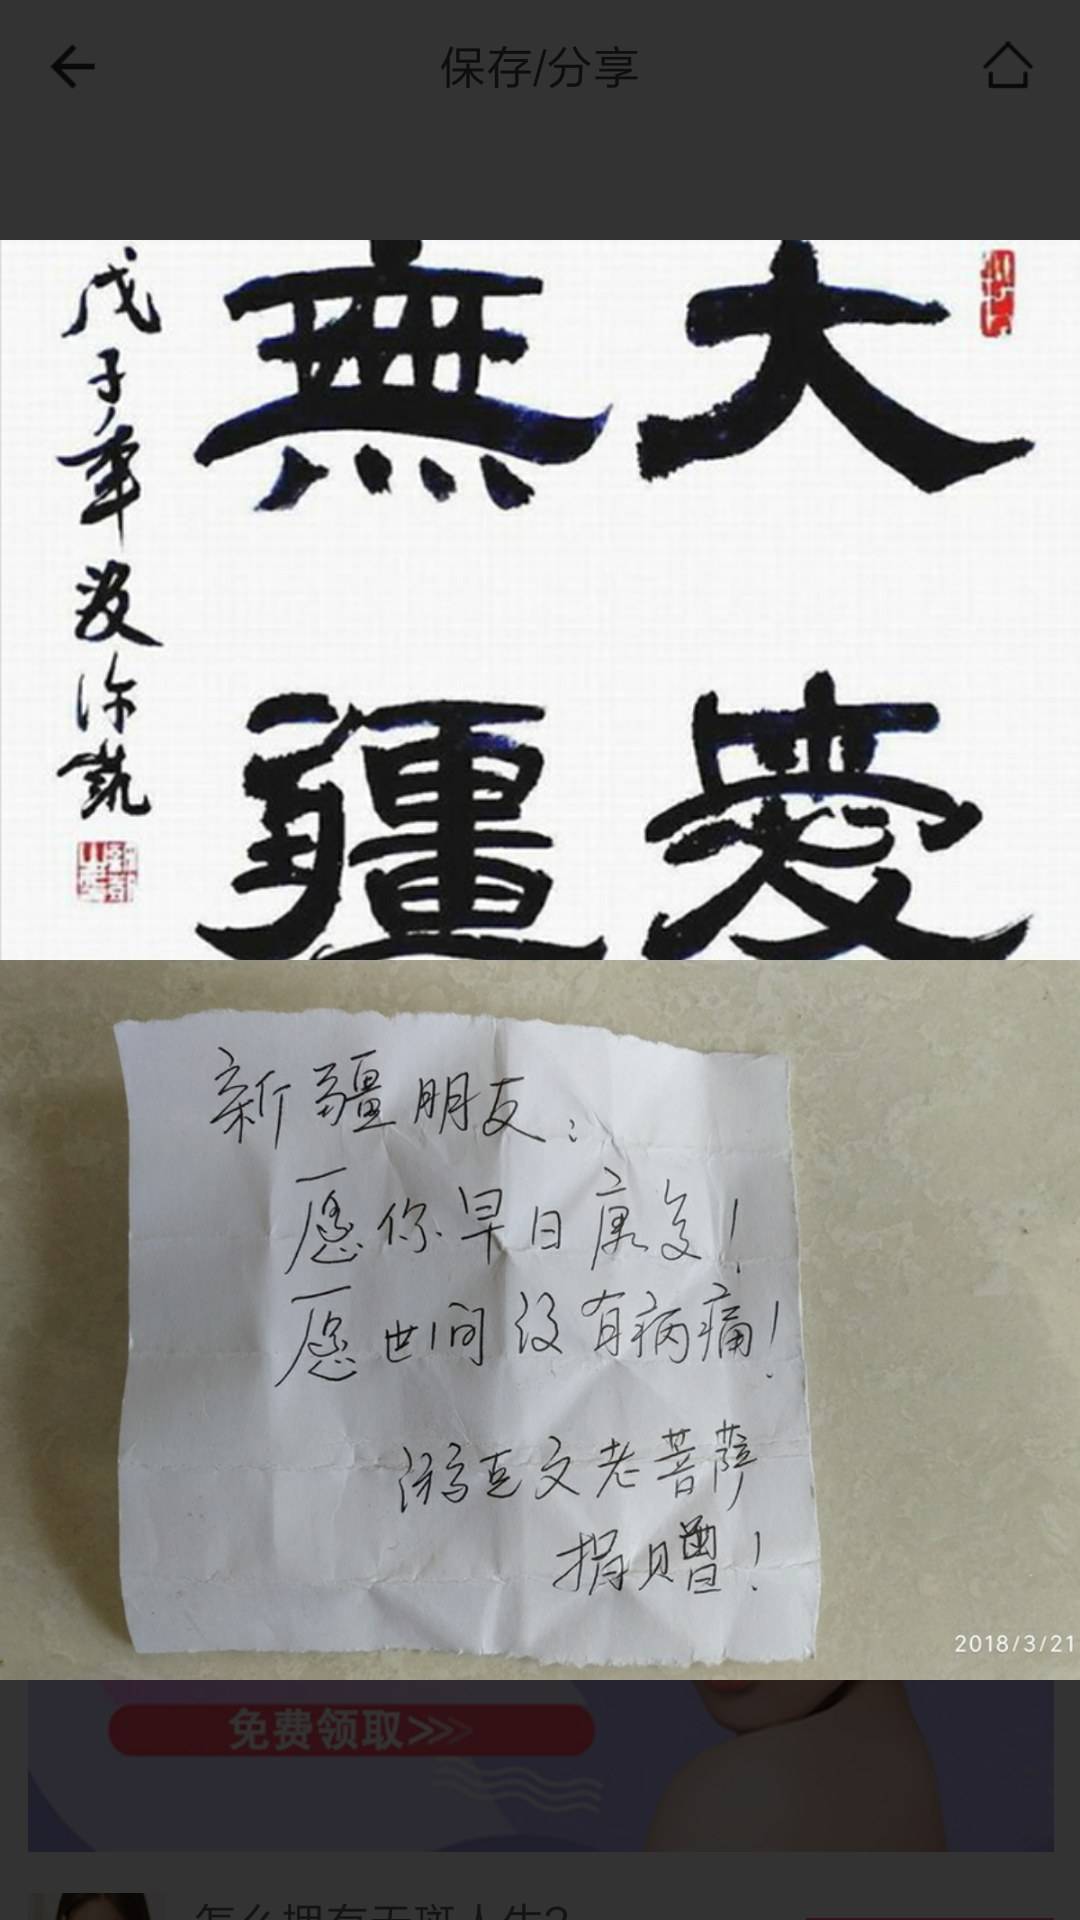 保存/分享
大愛
無疆
戊子年
新疆朋友：
愿你早日康复！
愿世间没有病痛！
文老菩萨
捐赠！
2018/3/21
免费领取>>>
怎么拥有无斑人生?